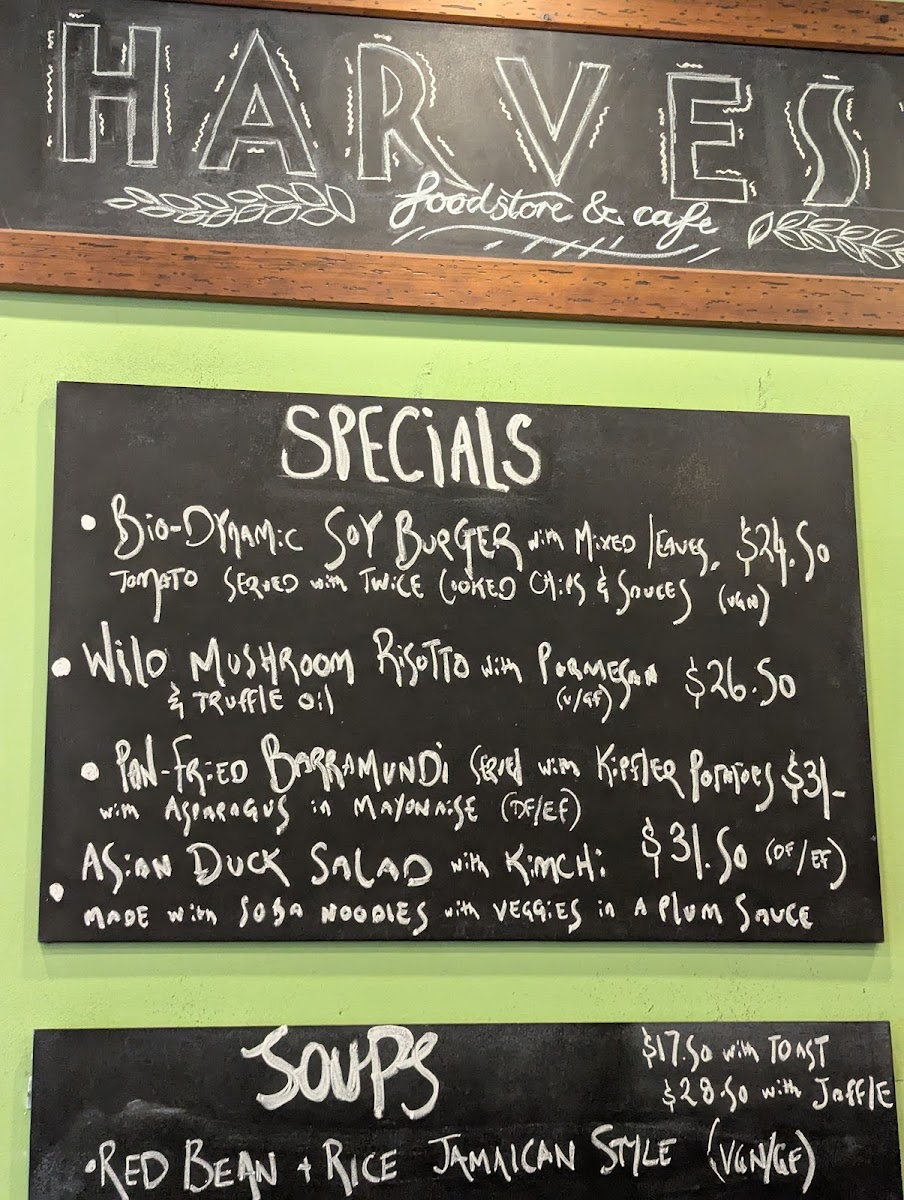 HARVES
foodstore & cafe
SPECIALS
• BIO-DYNAMIC SOY BURGER with MIXED LEAVES, $24.50
TOMATO SERVED with TWICE COOKED CHIPS & SAUCES (VGN)
• WILD MUSHROOM RISOTTO with PARMEGAN $26.50
& TRUFFLE OIL (V/GF)
• PAN-FRIED BARRAMUNDI SERVED with KIPFLER POTATOES $31-
with ASPARAGUS in MAYONAISE (DF/EF)
• ASIAN DUCK SALAD with KIMCHI $31.50 (DF/EF)
MADE with SOBA NOODLES with VEGGIES in A PLUM SAUCE
SOUPS
$17.50 with TOAST
$28.50 with JAFFLE
•RED BEAN + RICE JAMAICAN STYLE (VGN/GF)